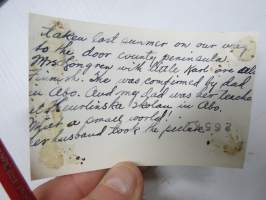 taken last summer on our way
to the door county peninsula.
Mrs. Longren with little Karl are all
Finnish. She was confirmed by dad
in Åbo. And my dad was her teacher
at Heurlinska Skolan in Åbo.
What a small world!
Her husband took the picture